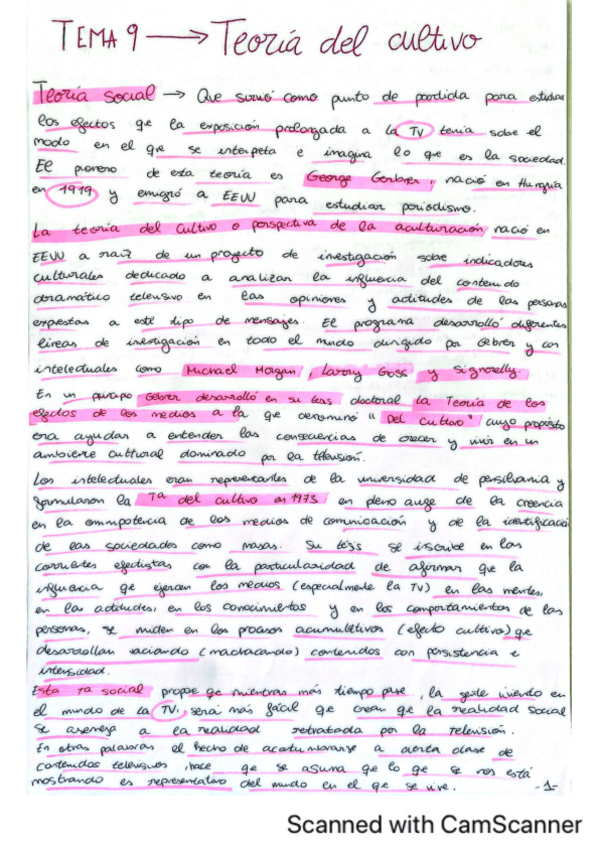 TEMA 9 → Teoría del cultivo
Teoría social → Que sirvió como punto de partida para estudiar
los efectos qe la exposición prolongada a la TV tenía sobre el
modo en el qe se interpeta e imagina lo que es la sociedad.
El pionero de esta teoría es George Gerbner, nació en Hungría
en 1919 y emigró a EEUU para estudiar periodismo.
La teoría del Cultivo o perspectiva de la aculturación nació en
EEUU a raíz de un proyecto de investigación sobre indicadores
culturales dedicado a analizar la influencia del contenido
dramático televisivo en las opiniones y actitudes de las personas
expuestas a este tipo de mensajes. El programa desarrolló diferentes
líneas de investigación en todo el mundo dirigido por Gebner y con
intelectuales como Michael Morgan, Larry Goss y Signorelly.
En un principio Gebner desarrolló en su tesis doctoral la Teoría de los
efectos de los medios a la que denominó "Del Cultivo" cuyo propósito
era ayudar a entender las consecuencias de crecer y vivir en un
ambiente cultural dominado por la televisión.
Los intelectuales eran representantes de la universidad de pensilvania y
formularon la Tª del cultivo en 1973 en pleno auge de la creencia
en la omnipotencia de los medios de comunicación y de la identificación
de las sociedades como masas. Su tesis se inscribe en las
corrientes efectistas con la particularidad de afirmar que la
influencia qe ejercen los medios (especialmente la TV) en las mentes,
en las actitudes, en los conocimientos y en los comportamientos de las
personas, se miden en los procesos acumulativos (efecto cultivo) qe
desarrollan vaciando (machacando) contenidos con persistencia e
intensidad.
Esta Tª social propone qe mientras más tiempo pase, la gente viviendo en
el mundo de la TV, será más fácil que crean que la realidad social
se asemeja a la realidad retratada por la televisión.
En otras palabras el hecho de acostumbrarse a cierta clase de
contenidos televisivos, hace qe se asuma que lo qe se nos está
mostrando es representativo del mundo en el qe se vive. -1-
Scanned with CamScanner